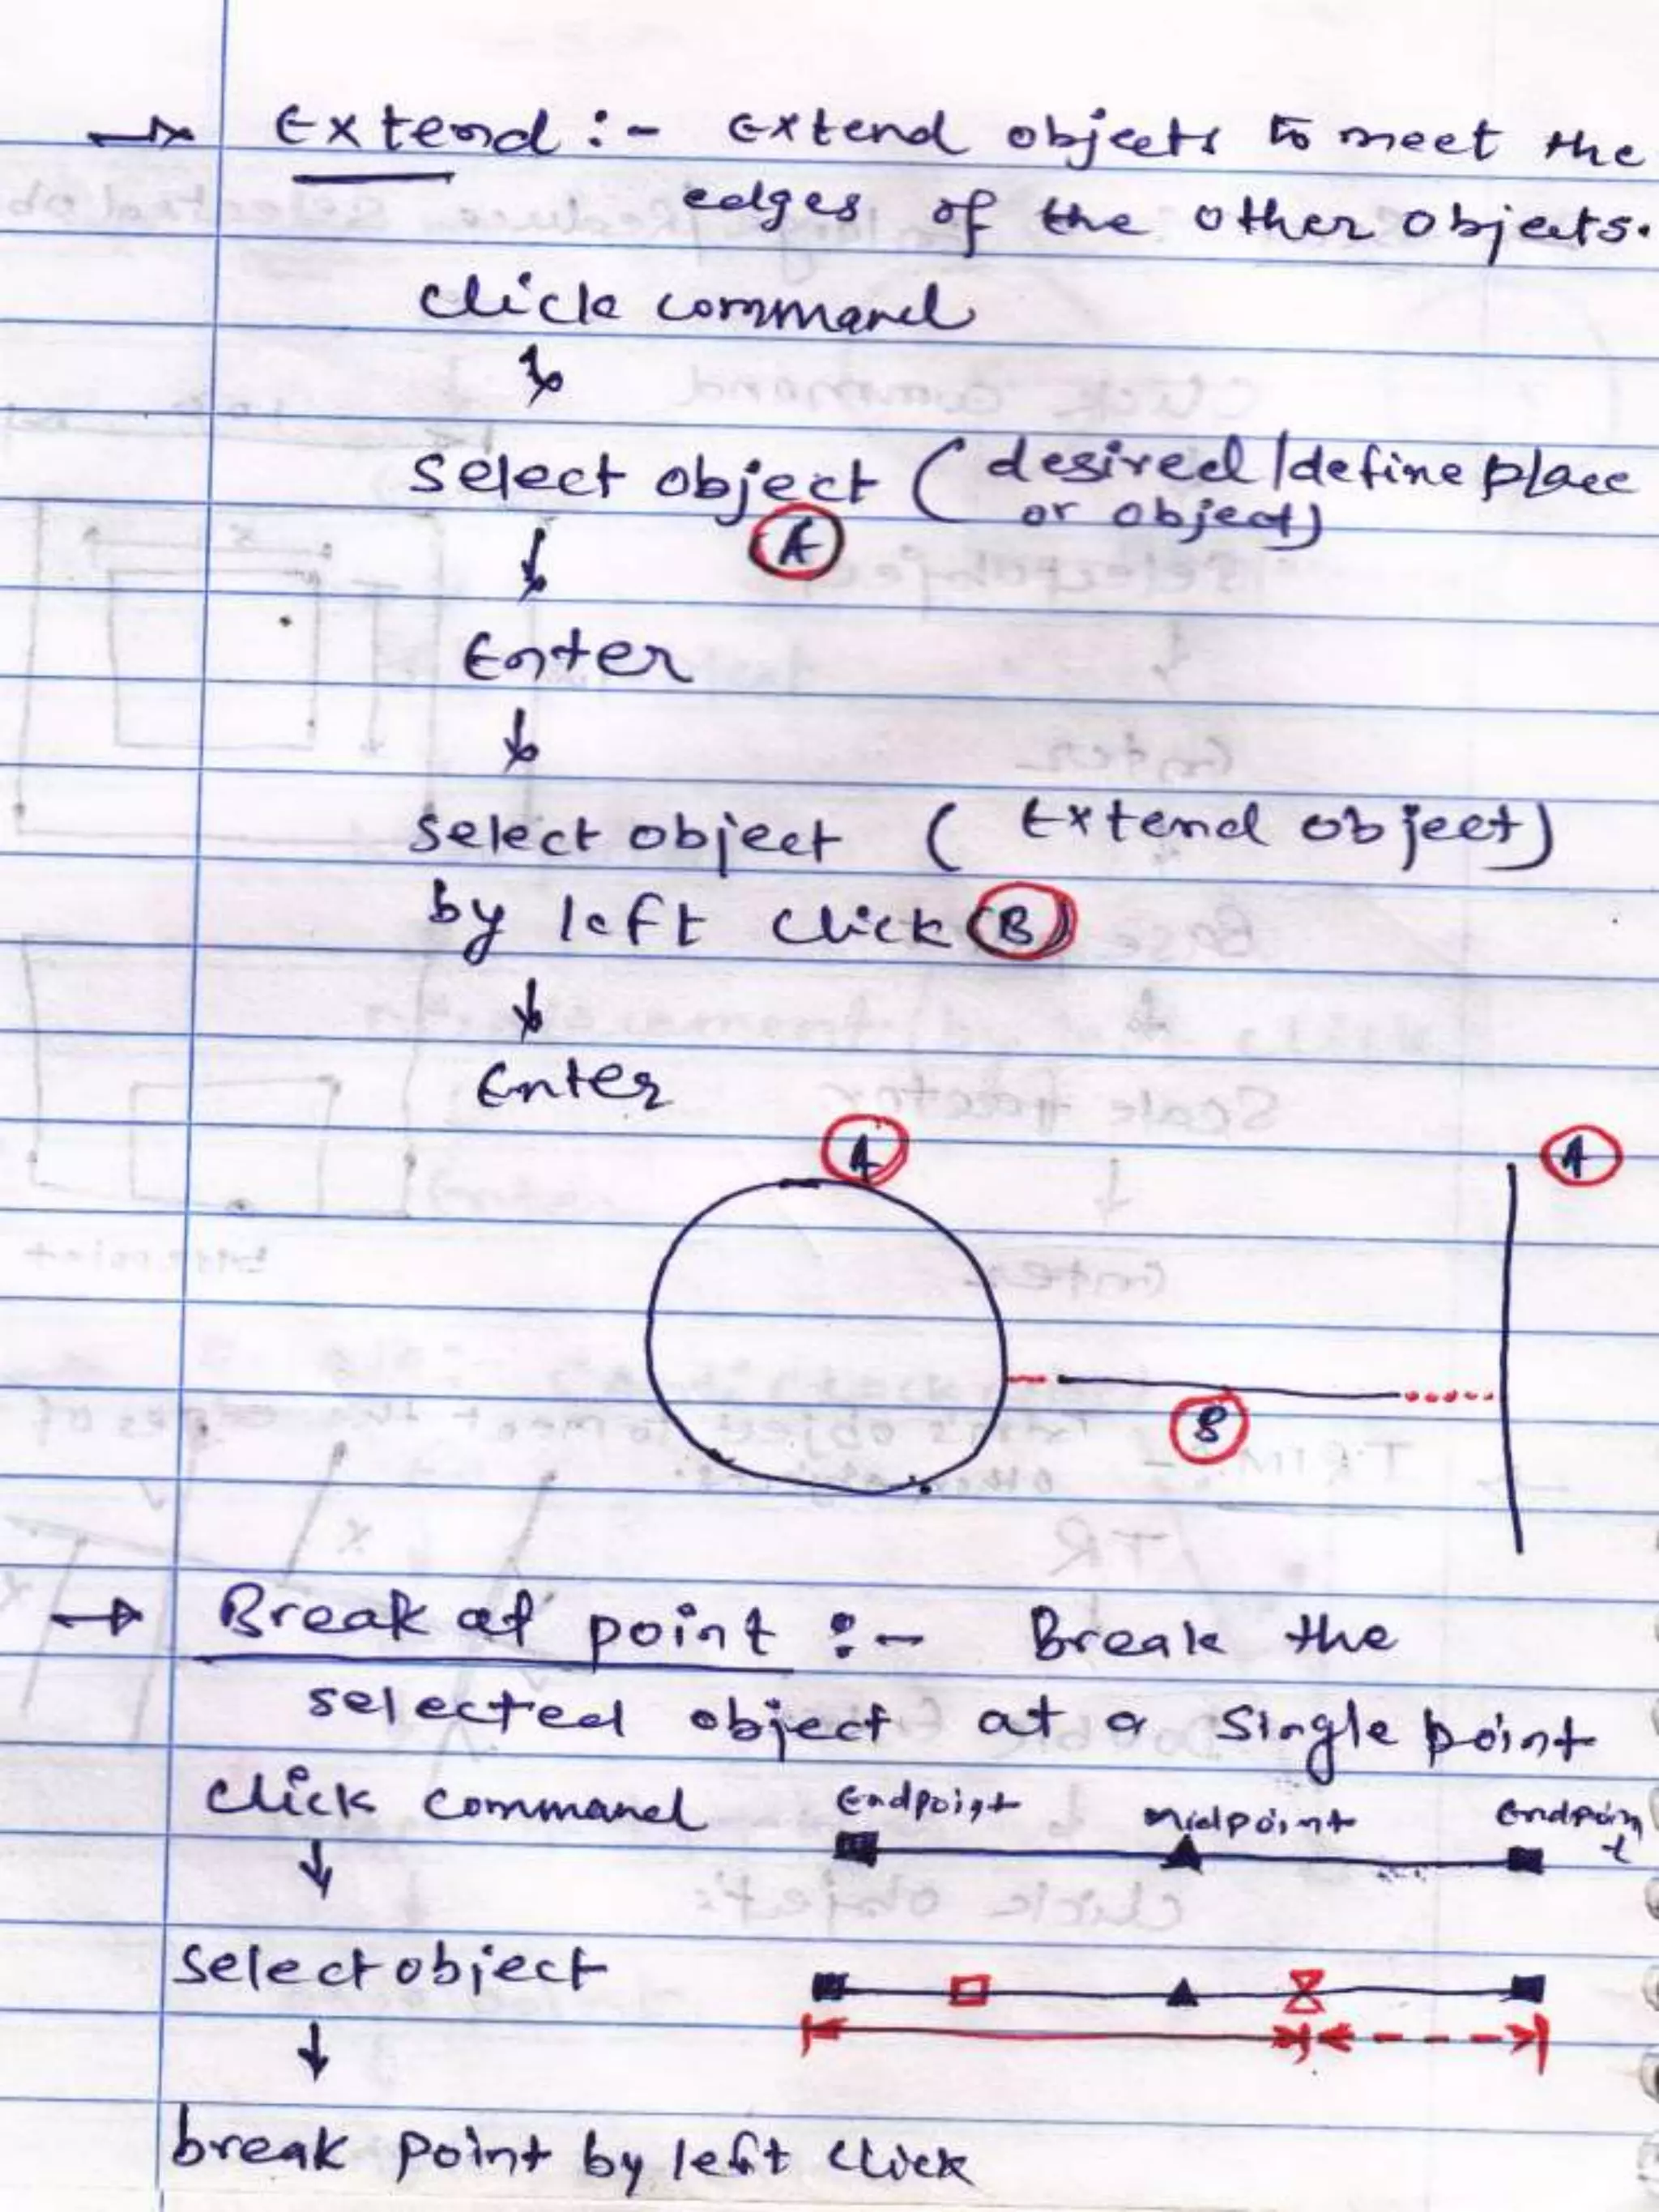 → Extend :- Extend objects to meet the
edges of the other objects.
Click command
↓
Select object (desired/define place
or object)
A
↓
Enter
↓
Select object (Extend object)
by left click (B)
↓
Enter
A
A
B
→ Break at point :- Break the
selected object at a single point
Click command
Endpoint Midpoint Endpoint
↓
Select object
↓
break point by left click